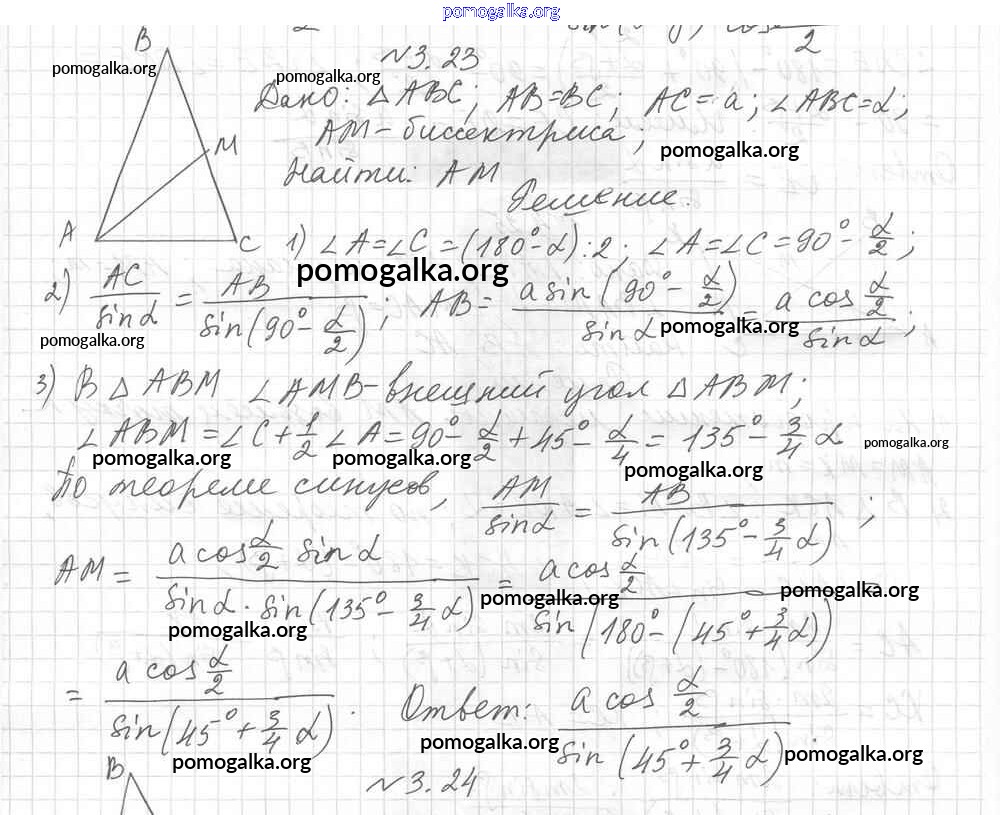 pomogalka.org
№3.23
B
pomogalka.org
pomogalka.org
Дано: △ABC; AB=BC; AC=a; ∠ABC=α;
AM-биссектриса;
M
pomogalka.org
Найти: AM
Решение.
A
C
1) ∠A=∠C=(180°-α):2; ∠A=∠C=90°-α/2;
pomogalka.org
2) AC/sinα = AB/sin(90°-α/2); AB= a sin(90°-α/2)/sinα = a cos α/2 / sinα;
pomogalka.org
pomogalka.org
3) В △ABM ∠AMB-внешний угол △ABM;
∠ABM=∠C+1/2∠A=90°-α/2+45°-α/4=135°-3/4α
pomogalka.org
pomogalka.org
pomogalka.org
pomogalka.org
По теореме синусов, AM/sinα = AB/sin(135°-3/4α);
AM= a cos α/2 sinα / sinα·sin(135°-3/4α) = a cos α/2 / sin(180°-(45°+3/4α)) =
pomogalka.org
pomogalka.org
pomogalka.org
= a cos α/2 / sin(45°+3/4α). Ответ: a cos α/2 / sin(45°+3/4α).
pomogalka.org
pomogalka.org
pomogalka.org
B
№3.24